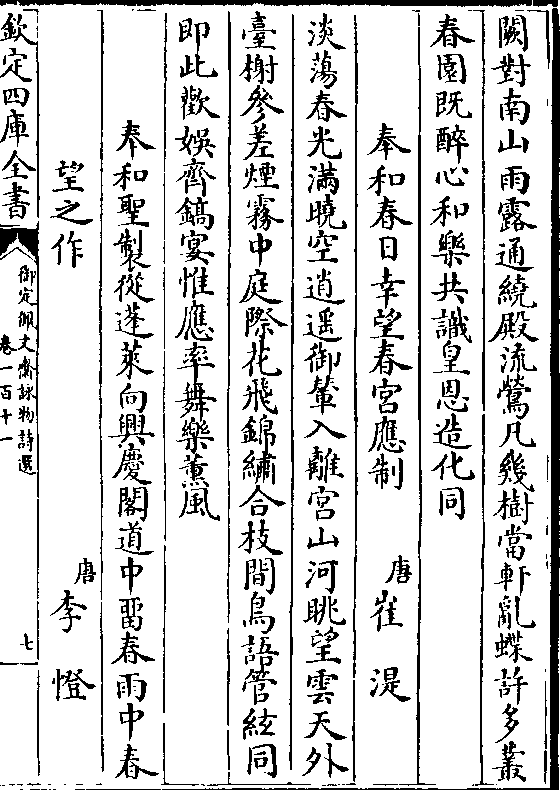 闕對南山雨露通繞殿流鶯凡幾樹當軒亂蝶許多叢
春園既醉心和樂共識皇恩造化同
奉和春日幸望春宮應制 唐 崔湜
淡蕩春光滿曉空逍遥御輦入離宮山河眺望雲天外
臺榭參差煙霧中庭際花飛錦繡合枝間鳥語管絃同
即此歡娛齊鎬宴惟應率舞樂薰風
奉和聖製從蓬萊向興慶閣道中畱春雨中春
望之作 唐 李憕
欽定四庫全書
御定佩文齋詠物詩選
卷一百十一
七